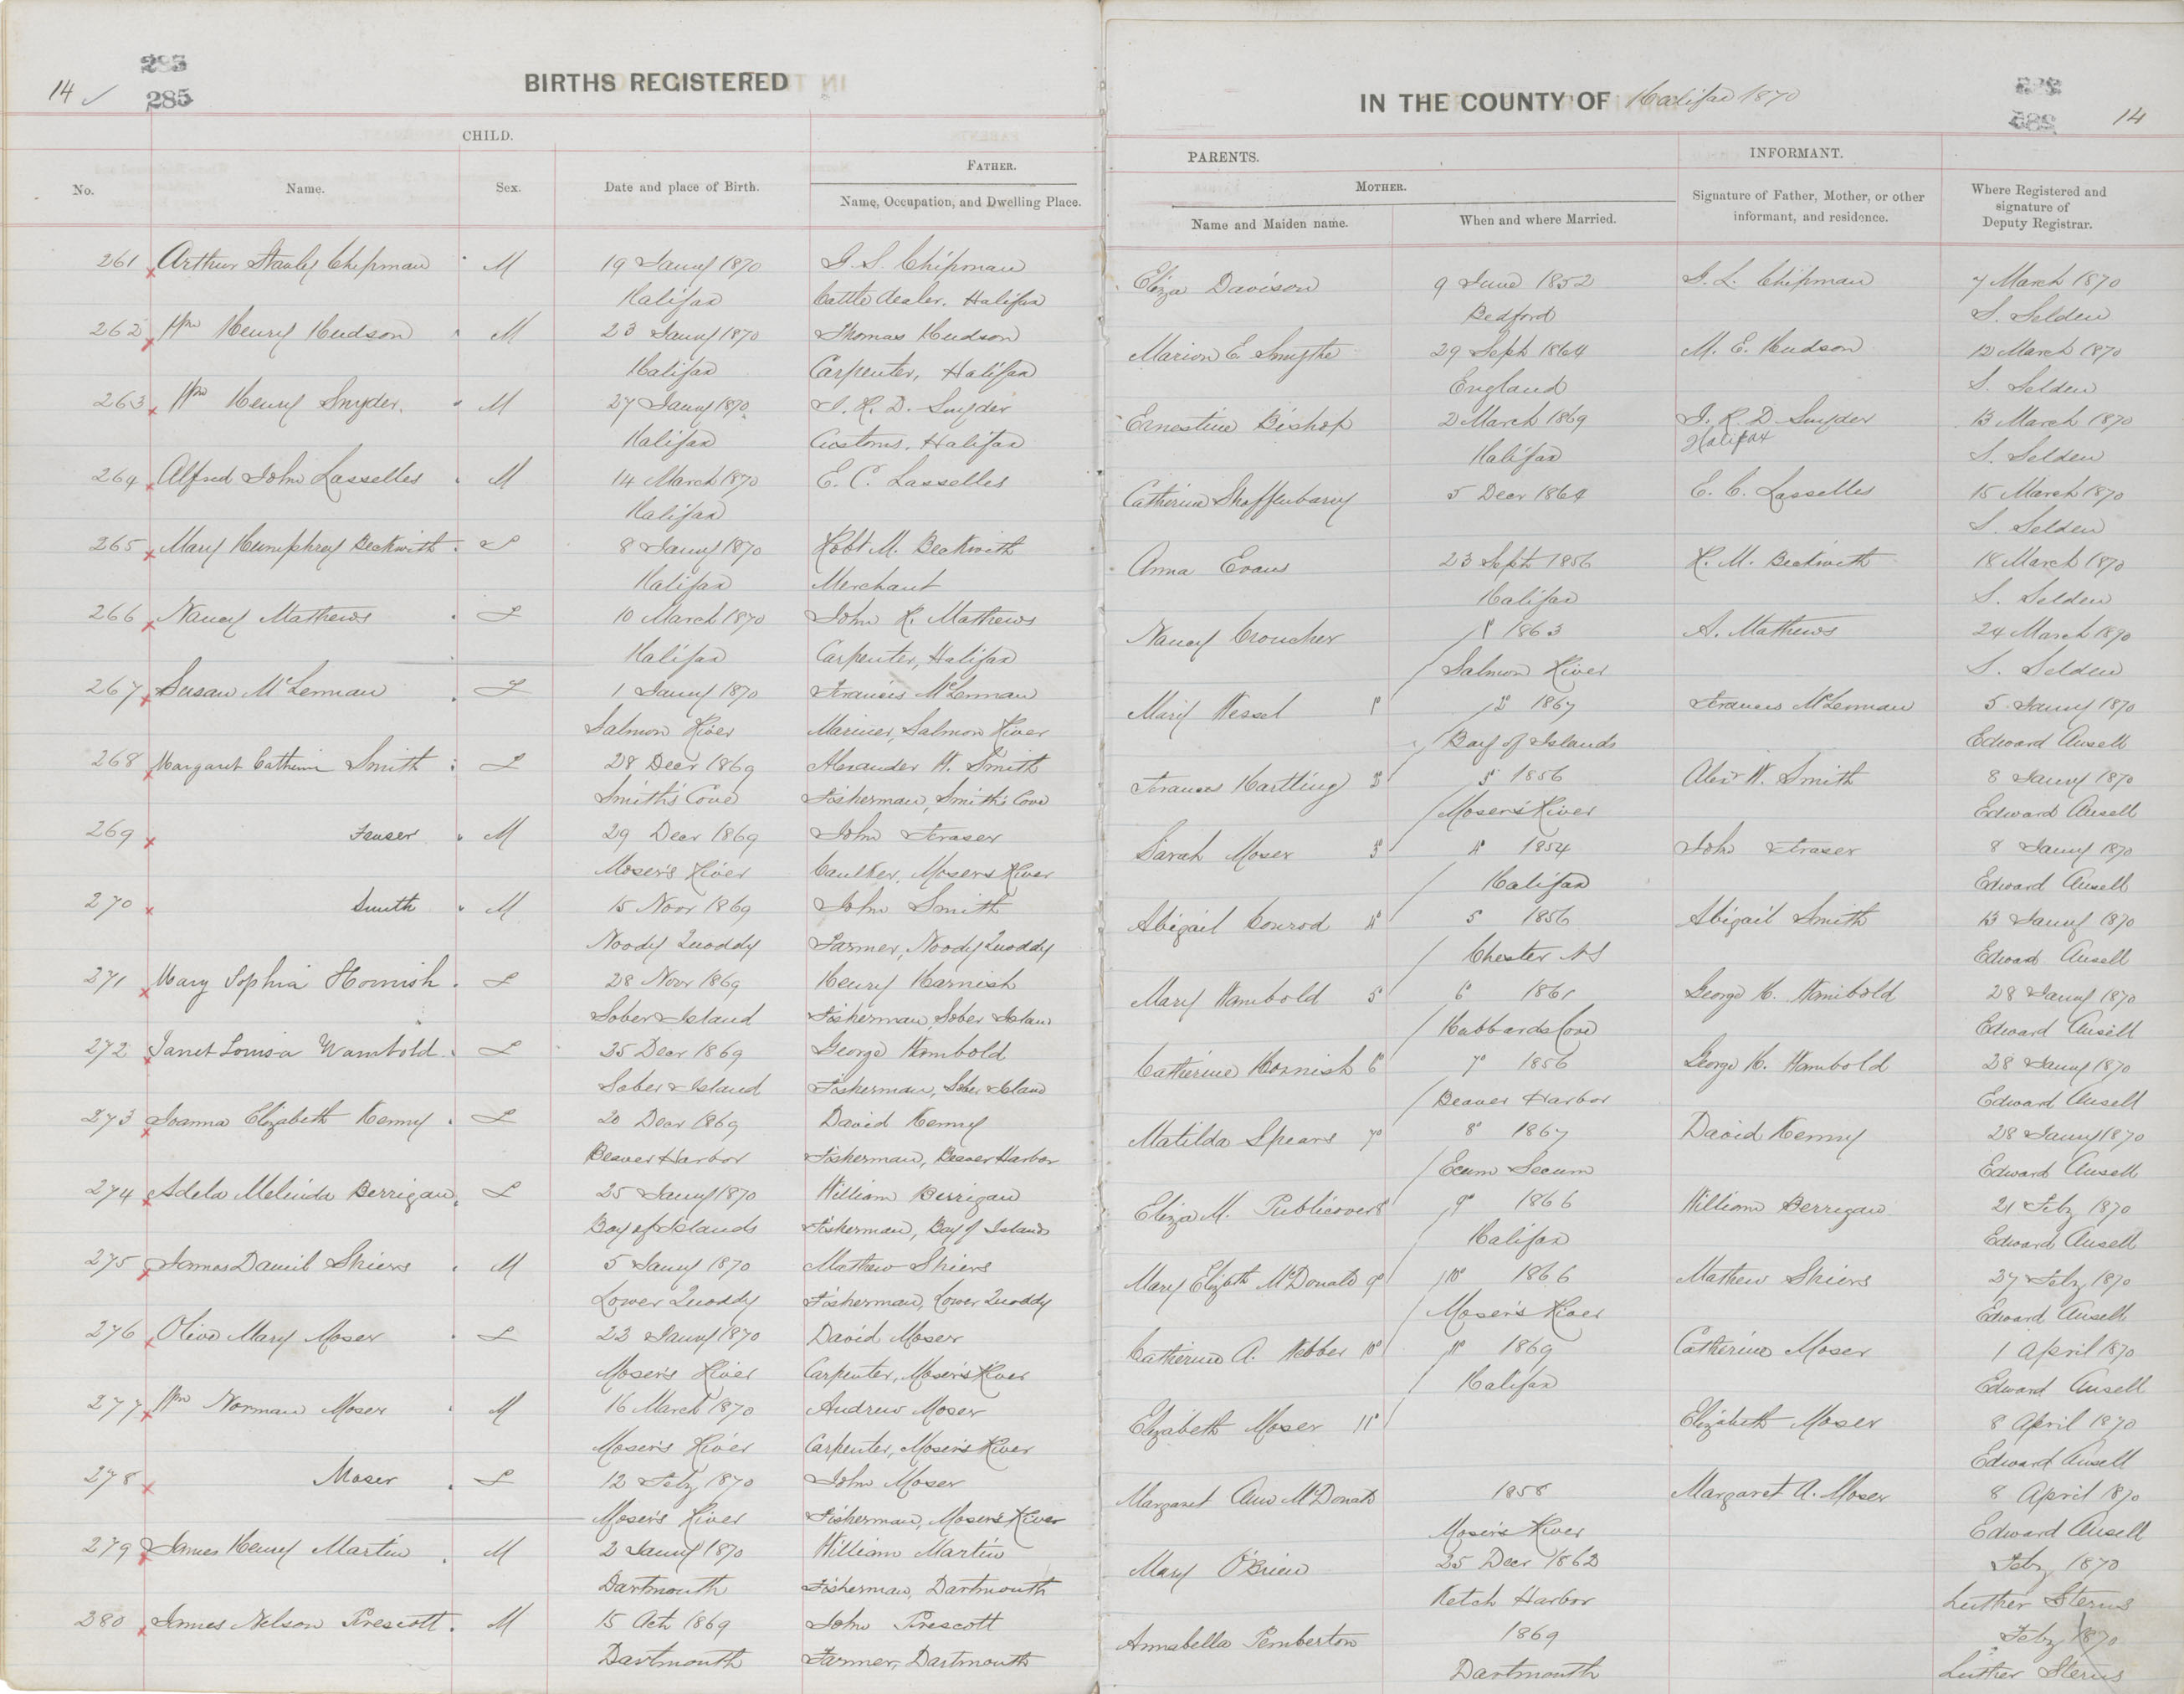 14 ✓ 285
285
BIRTHS REGISTERED
CHILD.
FATHER.
No. Name. Sex. Date and place of Birth. Name, Occupation, and Dwelling Place.
261 Arthur Stanley Chipman M 19 Jany 1870 Chipman
Halifax Cattle dealer. Halifax
262 Wm Henry Hudson M 23 Jany 1870 Thomas Hudson
Halifax Carpenter, Halifax
263 Wm Henry Snyder. M 27 Jany 1870 H. D. Snyder
Halifax Customs. Halifax
264 Alfred John Lasselles M 14 March 1870 E. C. Lasselles
Halifax
265 Mary Humphrey Beckwith F 8 Jany 1870 Robt M. Beckwith
Halifax Merchant
266 Nancy Mathews F 10 March 1870 John R. Mathews
Halifax Carpenter, Halifax
267 Susan McLennan F 1 Jany 1870 Francis McLennan
Salmon River Mariner, Salmon River
268 Margaret Catherin Smith F 28 Decr 1869 Alexander W. Smith
Smith's Cove Fisherman, Smith's Cove
269 M 29 Decr 1869 John Fraser
Moser's River Caulker, Moser's River
270 Smith M 15 Novr 1869 John Smith
Noody Quoddy Farmer, Noody Quoddy
271 Mary Sophia Hornish F 28 Novr 1869 Henry Harnish
Sober Island Fisherman, Sober Islan
272 Janet Louisa Wambold F 25 Decr 1869 George Wambold
Sober Island Fisherman, Sober Island
273 Joanna Elizabeth Kenny F 20 Decr 1869 David Kenny
Beaver Harbor Fisherman, Beaver Harbor
274 Adela Melinda Berrigan F 25 Jany 1870 William Berrigan
Bay of Islands Fisherman, Bay of Islands
275 James Daniel Shiers M 5 Jany 1870 Mathew Shiers
Lower Quoddy Fisherman, Lower Quoddy
276 Olive Mary Moser F 23 Jany 1870 David Moser
Moser's River Carpenter, Moser's River
277 Wm Norman Moser M 16 March 1870 Andrew Moser
Moser's River Carpenter, Moser's River
278 Moser F 12 Feby 1870 John Moser
Moser's River Fisherman, Moser's River
279 James Henry Martin M 2 Jany 1870 William Martin
Dartmouth Fisherman, Dartmouth
280 James Nelson Prescott. M 15 Oct 1869 John Prescott
Dartmouth Farmer, Dartmouth
IN THE COUNTY OF Halifax 1870
14
PARENTS. INFORMANT.
MOTHER.
Name and Maiden name. When and where Married. Signature of Father, Mother, or other informant, and residence. Where Registered and signature of Deputy Registrar.
Eliza Davison 9 June 1852 Chipman 7 March 1870
Bedford S. Selden
Marion E. Smythe 29 Sept 1864 M. E. Hudson 12 March 1870
England S. Selden
Ernestine Bishop 2 March 1869 R D Snyder 13 March 1870
Halifax Halifax S. Selden
Catherine 5 Decr 1864 E. C. Lasselles 15 March 1870
S. Selden
Anna Evans 23 Sept 1856 R. M. Beckwith 18 March 1870
Halifax S. Selden
Nancy Croucher 1º 1863 A. Mathews 24 March 1870
Salmon River S. Selden
Mary Wessel 1º 2º 1867 Francis McLennan 5 Jany 1870
Bay of Islands Edward Ansell
Frances Hartling 2º 3º 1856 Alexr W. Smith 8 Jany 1870
Moser's River Edward Ansell
Sarah Moser 3º 4º 1854 John Fraser 8 Jany 1870
Halifax Edward Ansell
Abigail Conrod 4º 5º 1856 Abigail Smith 13 Jany 1870
Chester NS Edward Ansell
Mary Wambold 5º 6º 1861 George H. Wambold 28 Jany 1870
Hubbards Cove Edward Ansell
Catherine Hornish 6º 7º 1856 George H. Wambold 28 Jany 1870
Beaver Harbor Edward Ansell
Matilda Spears 7º 8º 1867 David Kenny 28 Jany 1870
Ecum Secum Edward Ansell
Eliza M. Publicover 8º 9º 1866 William Berrigan 21 Feby 1870
Halifax Edward Ansell
Mary Elizbth McDonald 9º 10º 1866 Mathew Shiers 27 Feby 1870
Moser's River Edward Ansell
Catherine A. Webber 10º 11º 1869 Catherine Moser 1 April 1870
Halifax Edward Ansell
Elizabeth Moser 11º Elizabeth Moser 8 April 1870
Edward Ansell
Margaret Ann McDonald 1858 Margaret A. Moser 8 April 1870
Moser's River Edward Ansell
Mary O'Brien 25 Decr 1862 Feby 1870
Ketch Harbor Luther Sterns
Annabella Pemberton 1869 Feby 1870
Dartmouth Luther Sterns